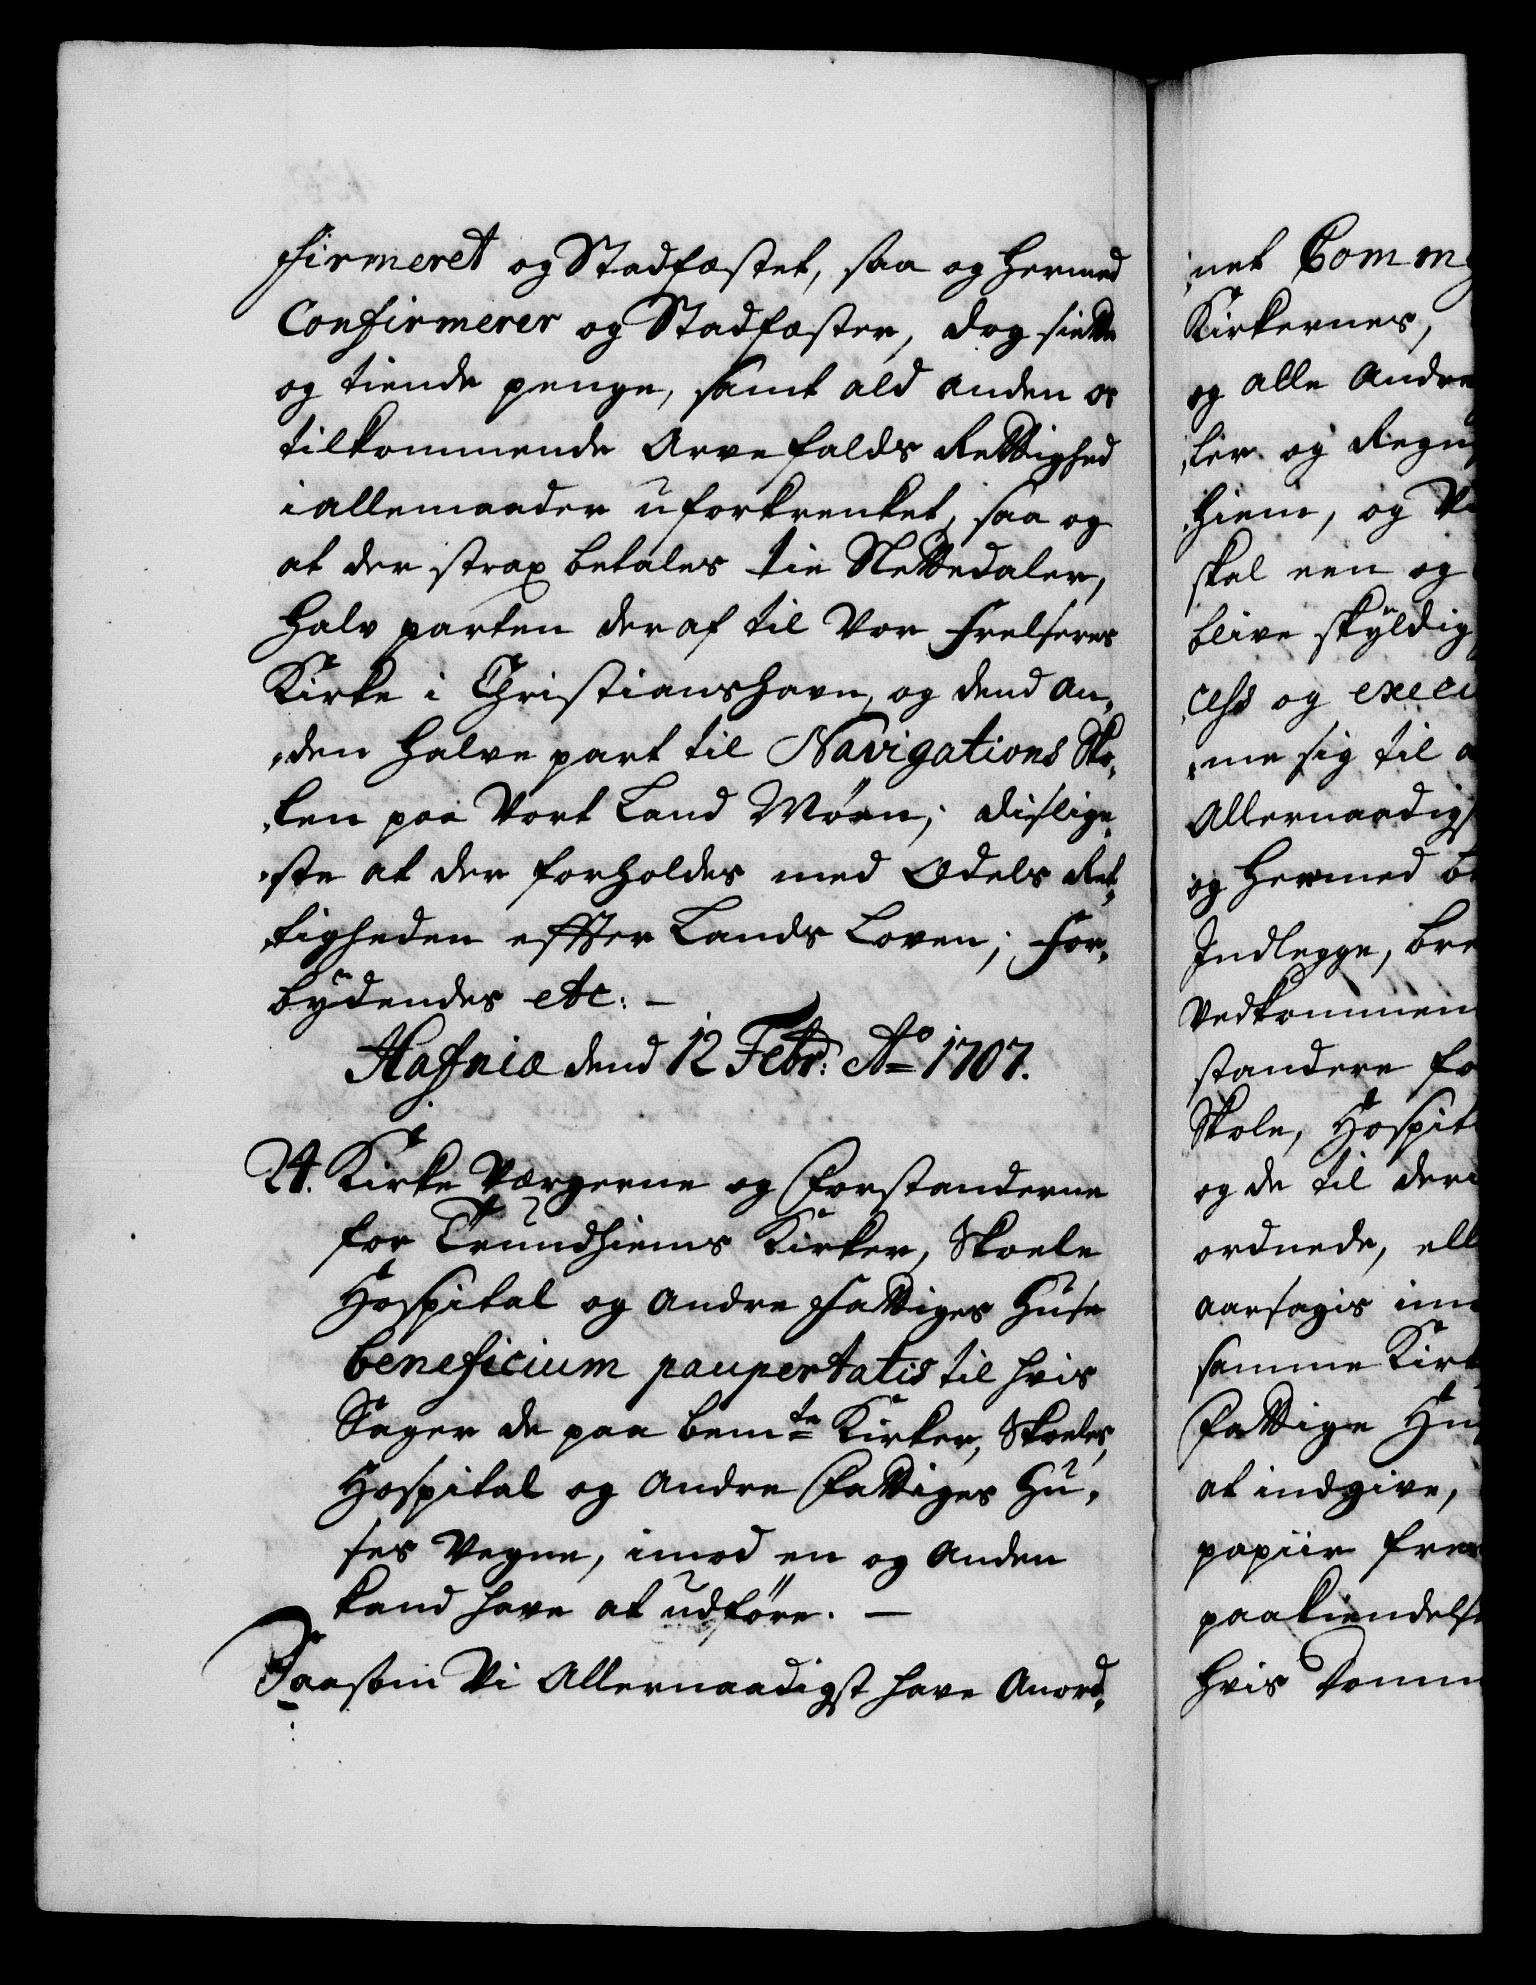 firmeret og Stadfæstet, saa og hermed
Confirmerer og Stadfæster, dog siette
og tiende penge, samt ald anden os
tilkommende Arvefalds Rettighed
i allemaader uforkrenket, saa og
at der strax betales tie Slettedaler,
halv parten deraf til Vor Frelseres
Kirke i Christianshavn, og dend an,
,den halve part til Navigations Sko,
,len paa Vort Land Møen; disslige,
,ste at der forholdes med Odels Ret,
,tigheden effter Lands Loven; For,
bydendes etc: –
Hafniæ dend 12 Febr: Ao 1707.
24. Kirke Værgerne og Forstanderne
for Trundhiems Kirker, Skoele
Hospital og Andre Fattiges Huse
beneficium paupertatis til hvis
Sager de paa bemte Kirker, Skoeles,
Hospital og Andre Fattiges Hu,
ses Vegne, imod en og Anden
kand have at udføre. –
Saasom Vi Allernaadigst have Anord,
,net Comm
Kirkernes,
og alle Andre
,ler og Regn
,hiem, og V
skal een og
blive skyldig
,cess og execu
,me sig til a
Allernaadigs
og hermed b
Indlegge, bre
Vedkommen
standere fo
Skole, Hospit
og de til der
ordnede, ell
aarsagis im
samme Kirk
Fattige Hu
at indgive,
papiir frem
paakiendelse
hvis Domm